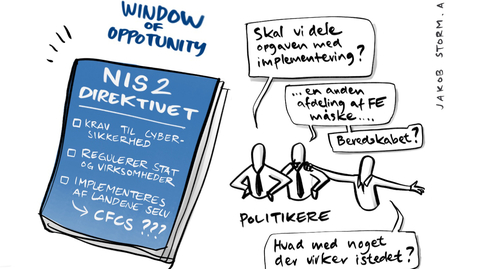 WINDOW
OF
OPPOTUNITY
NIS2
DIREKTIVET
KRAV TIL CYBER-
SIKKERHED
REGULERER STAT
OG VIRKSOMHEDER
IMPLEMENTERES
AF LANDENE SELV
→ CFCS ???
Skal vi dele
opgaven med
implementering?
...en anden
afdeling af FE
måske....
Beredskabet?
POLITIKERE
Hvad med noget
der virker istedet?
JAKOB STORM.A